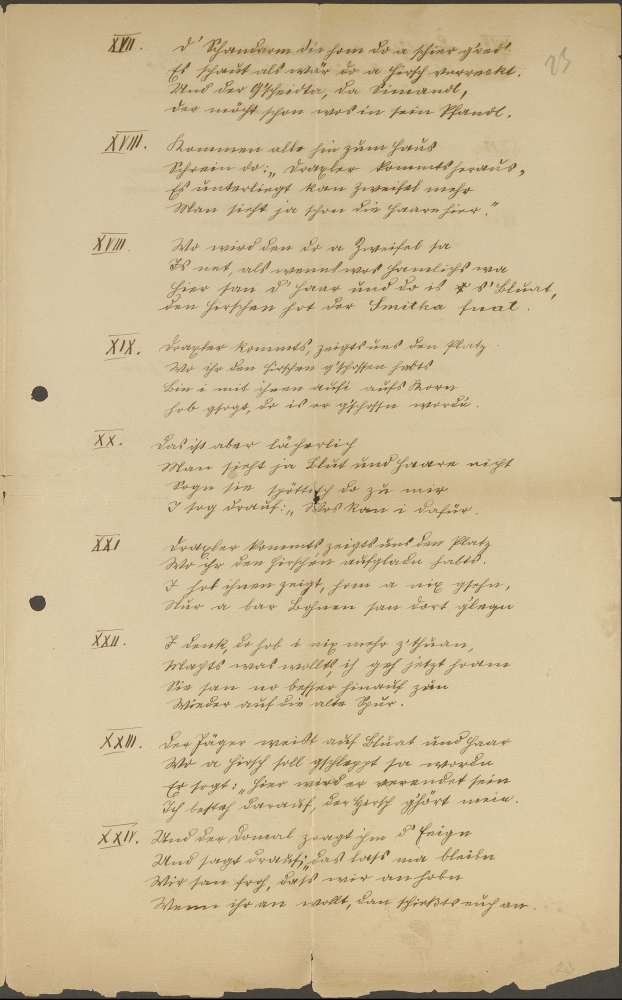 23
XVII. D' Schandarm die hom do a schier g'red'
Es schaut als wär do a Hirsch verreckt.
Und der G'scheidta, da Simandl,
der möcht schon wos in sein Pfandl.
XVIII. Kommen alle hin zum Haus
Schrein do: „Draxler kommts heraus,
Es unterliegt kan Zweifel mehr
Man sieht ja schon die Haare hier."
XVIII. Wo wird den do a Zweifel sa
Is net, als wenns wos hamlichs wa
Hier san d' Haar und do is s' Bluat,
den Hirschen hot der Smitka
XIX. Draxler kommts, zeigts uns den Platz.
Wo ihr den Hirschen g'schossen habts
Bin i mit ihnen aufi aufs Korn
hob gsogt, do is er g'schossn wordn.
XX. Das ist aber lächerlich
Man sieht ja Blut und Haare nicht
Sogn sie spöttisch do zu mir
I sog drauf: „Wos kan i dafür.
XXI Draxler kommts zeigts uns den Platz
Wo ihr den Hirschen aufgladn habts.
I hob ihnen zeigt, hom a nix gsehn,
Nur a bar Bohnen san dort g'legn
XXII. I denk, do hob i nix mehr z'thuan,
Machts was wollts, ich geh jetzt hoam
Sie san no besser hinauf zum
Wieder auf die alte Spur.
XXIII. Der Jäger weist auf Bluat und Haar
Wo a Hirsch soll gschleppt sa wordn
Er sogt: „Hier wird er verendet sein
Ich besteh darauf, der Hirsch g'hört mein.
XXIV. Und der Domal zoagt ihm d' Feign
Und sagt drauf; „das lass ma bleibn
Wir san froh, dass wir an hobn
Wenn ihr an wollt, dan schiesst euch an.